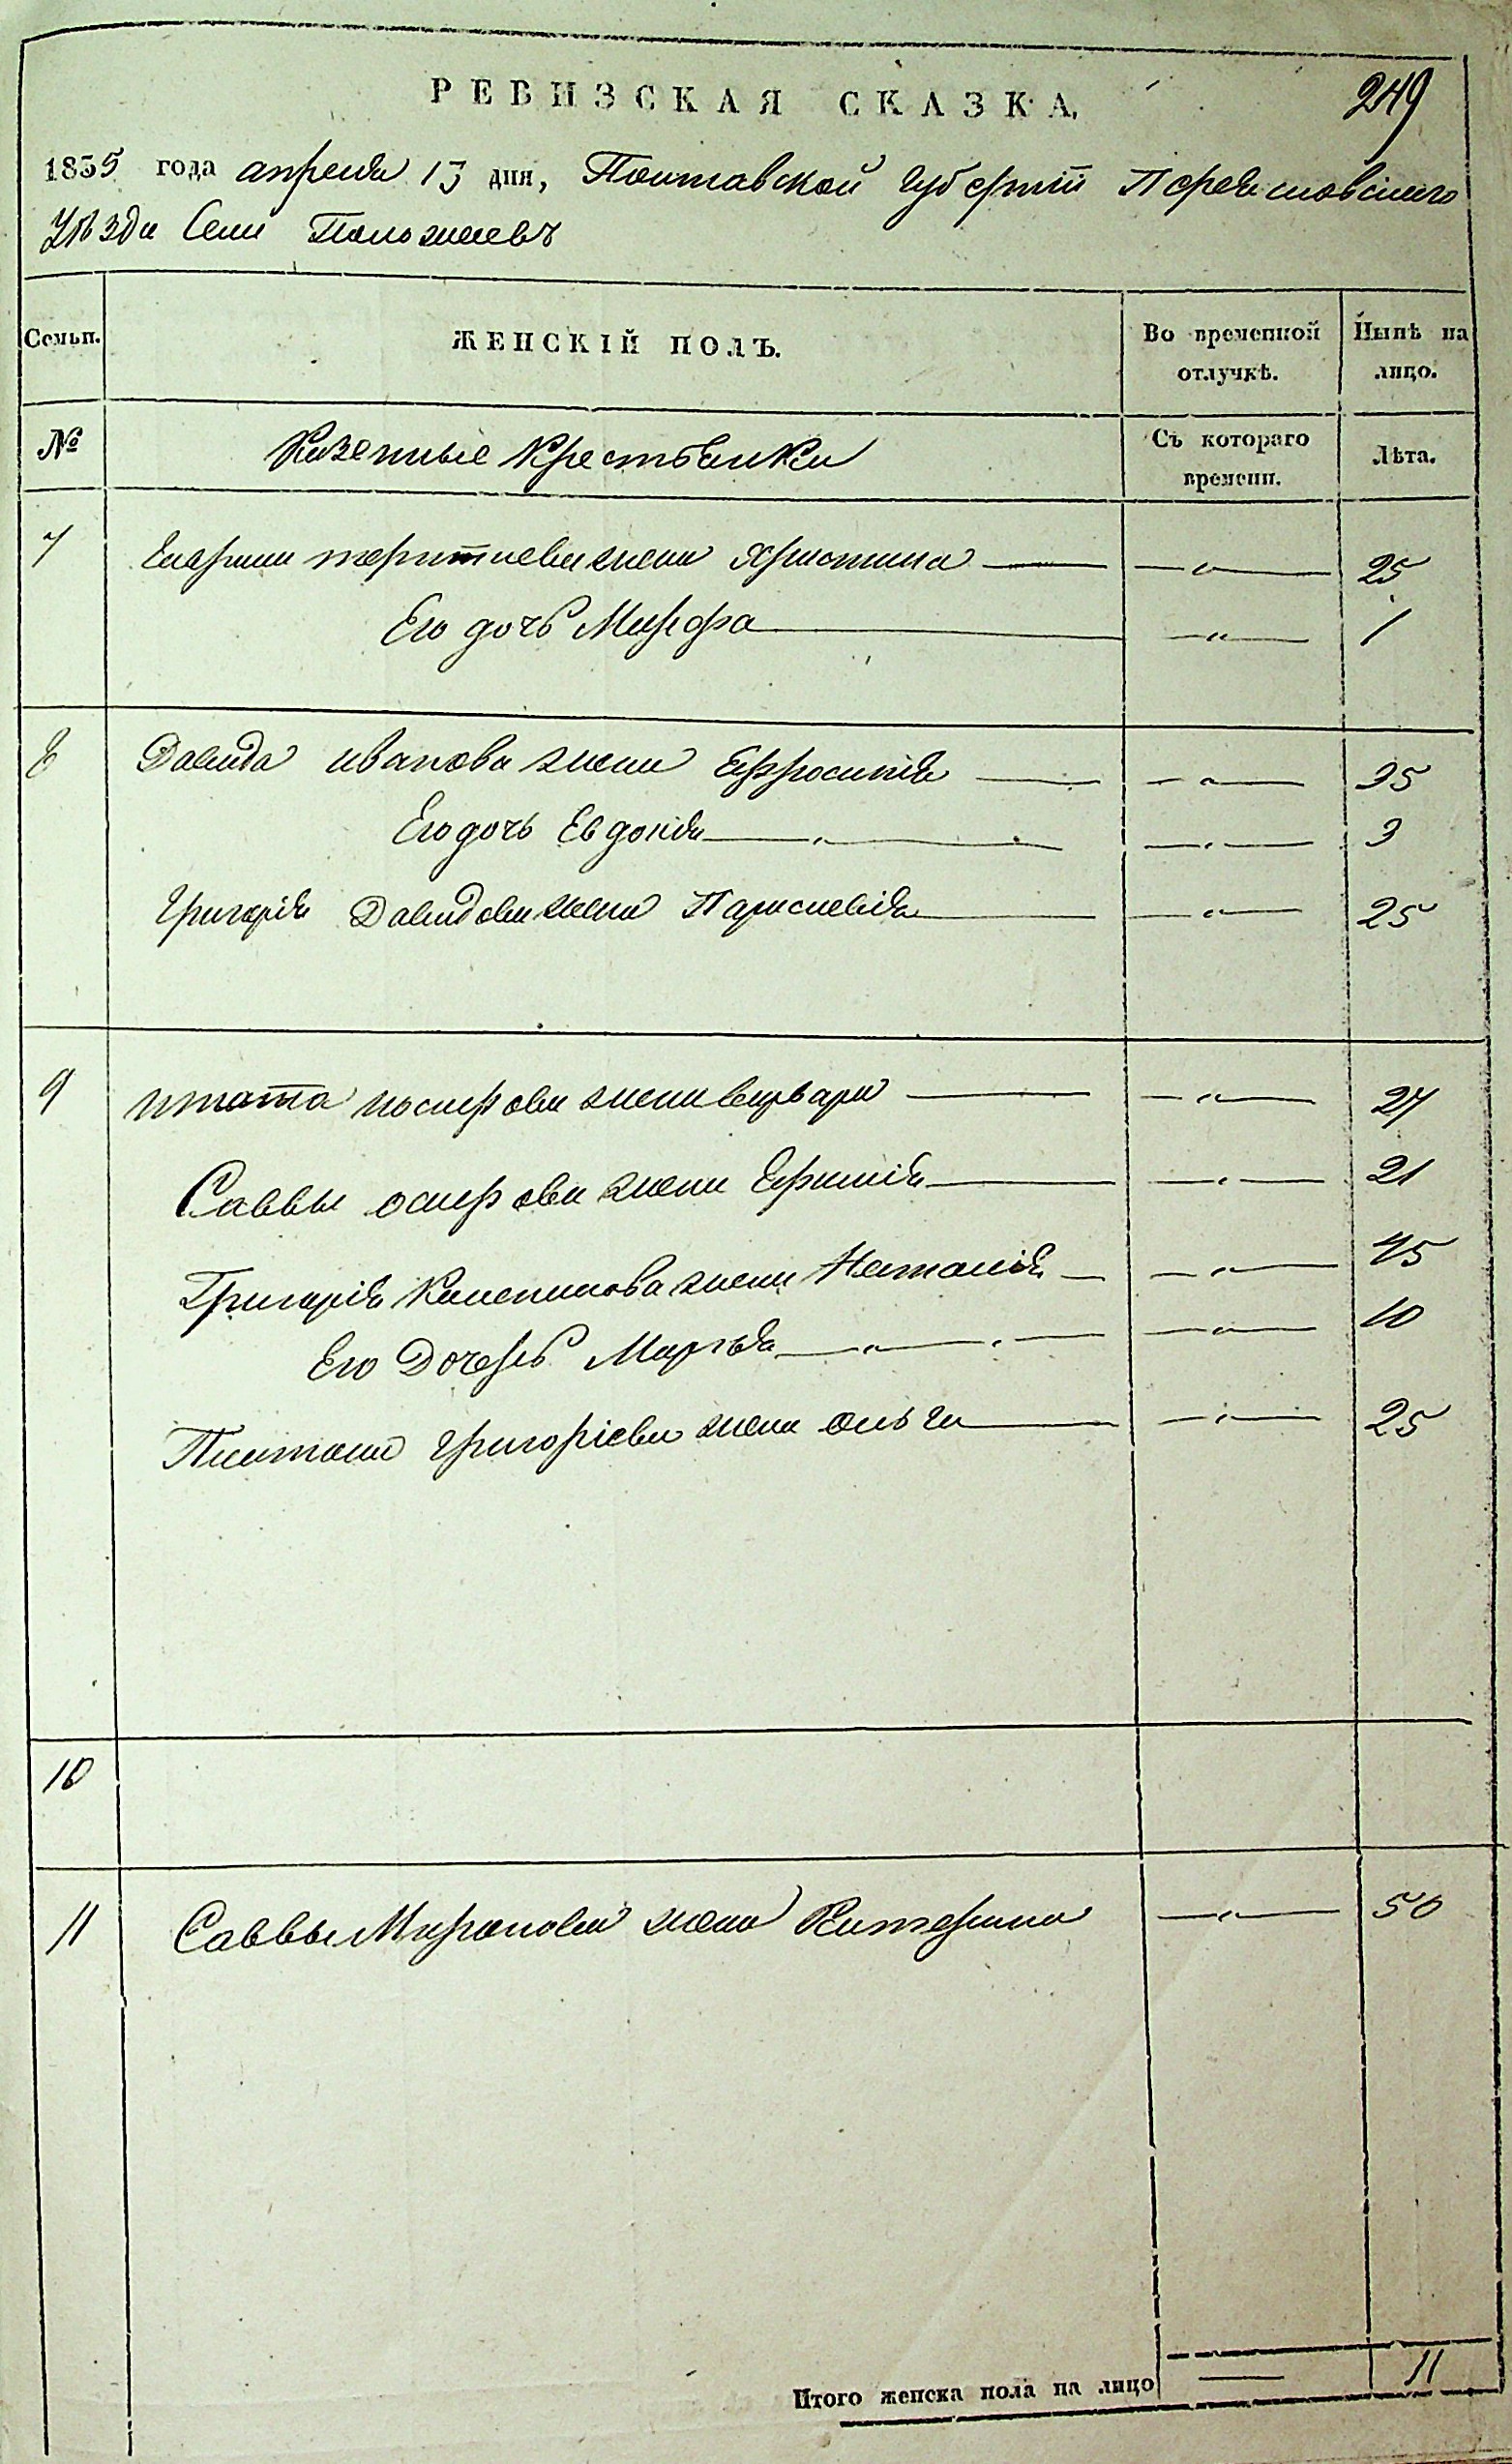 РЕВИЗСКАЯ СКАЗКА.
249
1835 года апреля 13 дня, Полтавской губерніи Переяславскаго
Уѣзда Села Положаевъ
Семьи. ЖЕНСКІЙ ПОЛЪ. Во временной отлучкѣ. Нынѣ на лицо.
№ Казенные Крестьянки Съ котораго времени. Лѣта.
7 жена Христина — „ — 25
Его дочь Марфа — „ — 1
8 Давида иванова жена Ефросинія — „ — 35
Его дочь Евдокія — „ — 3
Григорія Давидова жена Параскевія — „ — 25
9 игната иосифова жена варвара — „ — 27
Саввы осифова жена Ефимія — „ — 21
Григорія Калепикова жена Наталія — „ — 45
Его Дочерь Марья — „ — 10
Григоріева жена ольга — „ — 25
10
11 Саввы Миронова жена Катерина — „ — 50
Итого женска пола на лицо — 11